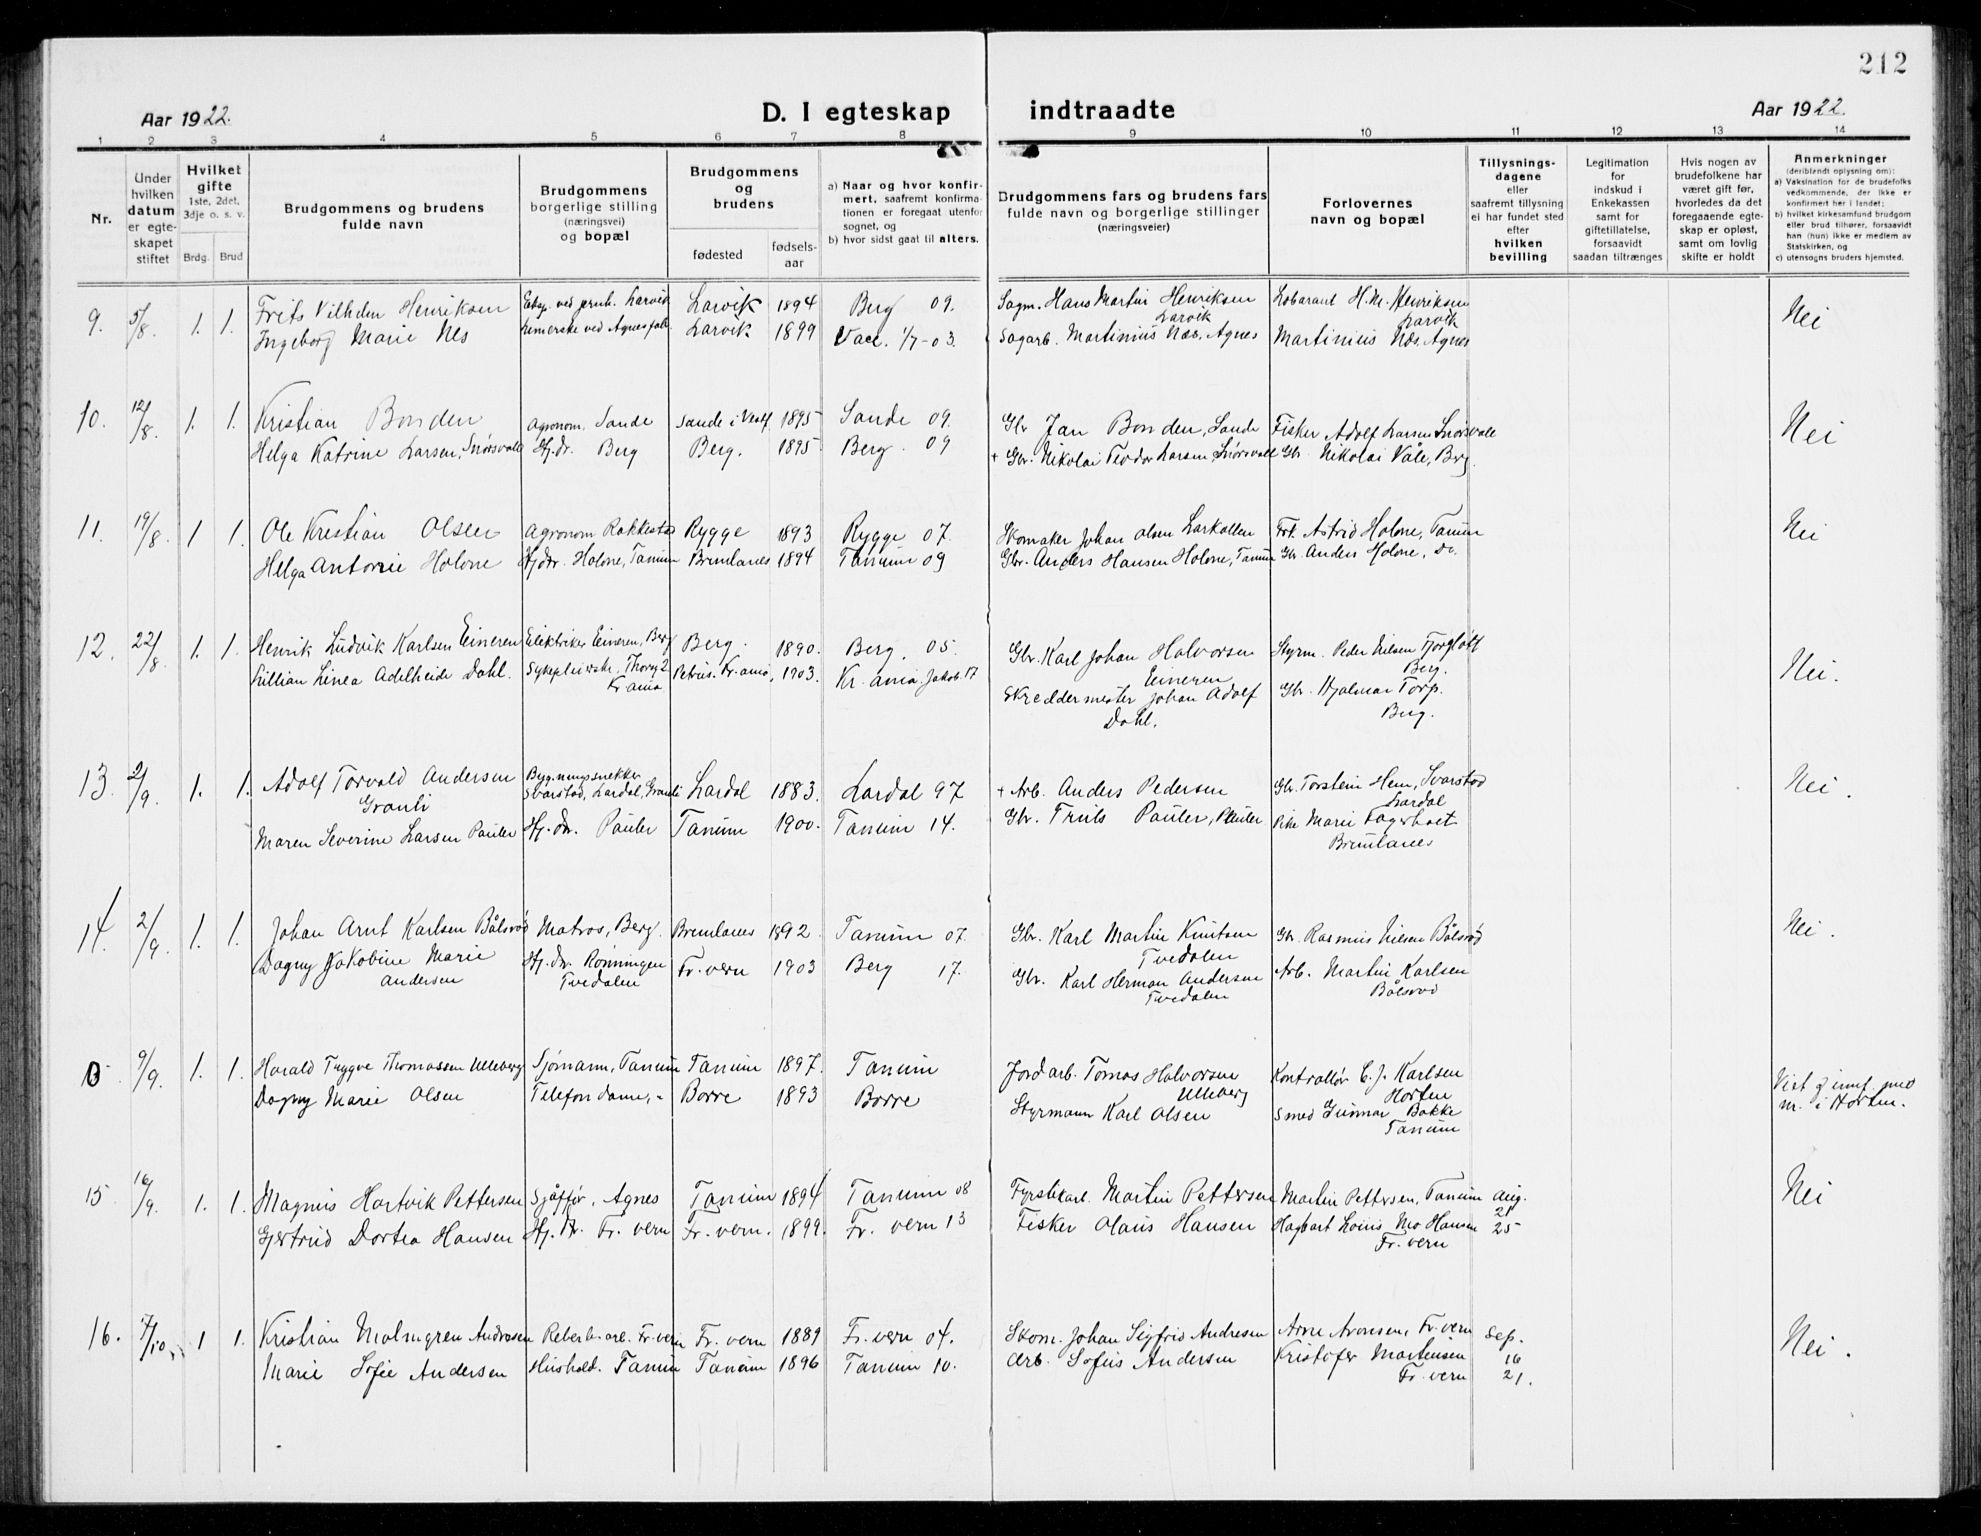 212
Aar 1922.
D. I egteskap indtraadte
Aar 1922.
1 2 3 4 5 6 7 8 9 10 11 12 13 14
Nr.
Under hvilken datum er egteskapet stiftet
Hvilket gifte 1ste, 2det, 3dje o. s. v.
Brdg. Brud
Brudgommens og brudens fulde navn
Brudgommens borgerlige stilling (næringsvei) og bopæl
Brudgommens og brudens
fødested
fødselsaar
a) Naar og hvor konfirmert, saafremt konfirmationen er foregaat utenfor sognet, og
b) hvor sidst gaat til alters.
Brudgommens fars og brudens fars fulde navn og borgerlige stillinger (næringsveier)
Forlovernes navn og bopæl
Tillysningsdagene eller saafremt tillysning ei har fundet sted efter hvilken bevilling
Legitimation for indskud i Enkekassen samt for giftetillatelse, forsaavidt saadan tiltrænges
Hvis nogen av brudefolkene har været gift før, hvorledes da det foregaaende egteskap er opløst, samt om lovlig skifte er holdt
Anmerkninger (deriblandt oplysning om):
a) Vaksination for de brudefolks vedkommende, der ikke er konfirmert her i landet;
b) hvilket kirkesamfund brudgom eller brud tilhører, forsaavidt han (hun) ikke er medlem av Statskirken, og
c) utensogns bruders hjemsted.
9. 5/8. 1. 1. Frits Vilhelm Henriksen Larvik Larvik 1894 Berg 09. Sagm. Hans Martin Henriksen Larvik H. M. Henriksen Larvik Nei
Ingeborg Marie Nes ved Agnes Larvik 1899 Vacc. 1/7-03. Sagarb. Martinius Næs, Agnes Martinius Næs, Agnes
10. 12/8. 1. 1. Kristian Bonden Agronom, Sande Sande i Vestf. 1895 Sande 09. Gbr Jan Bonden, Sande Fisker Adolf Larsen Snørsvale Nei
Helga Katrine Larsen, Snørsvale Hj.dr. Berg Berg. 1895 Berg. 09 + Gbr. Nikolai Teodor Larsen, Snørsvale Gbr. Nikolai Vale, Berg.
11. 19/8. 1 1. Ole Kristian Olsen Agronom Rakkestad Rygge 1893 Rygge 07. Skomaker Johan Olsen Larkollen Frk. Astrid Holone, Tanum Nei
Helga Antonie Holone Hj.dtr. Holone, Tanum Brunlanes 1894 Tanum 09 Gbr. Anders Hansen Holone, Tanum Gbr. Anders Holone, Do.
12. 22/8. 1. 1. Henrik Ludvik Karlsen Eineren Elektriker Eineren, Berg Berg. 1890. Berg. 05. Gbr. Karl Johan Halvorsen Eineren Styrm. Peder Nielsen Berg. Nei.
Lillian Linea Adelheide Dahl. Sykepleierske, Kr.ania Petrus. Kr.ania, 1903. Kr.ania. Jakob. 17 Skreddermester Johan Adolf Dahl. Gbr. Hjalmar Torp. Berg.
13. 2/9. 1. 1. Adolf Torvald Andersen Granli Bygningssnekker Svarstad, Lardal, Granli Lardal 1883. Lardal 97 + Arb. Anders Pedersen Gbr. Torstein Hem, Svarstad Lardal Nei.
Maren Severine Larsen Pauler Hj.dr. Pauler Tanum 1900. Tanum 14. Gbr. Truls Pauler, Pauler Pike Marie Fagerholt Brunlanes
14. 2/9. 1. 1. Johan Arnt Karlsen Bålsrød Matros, Berg. Brunlanes 1892. Tanum 07. Gbr. Karl Martin Knutsen Tvedalen Gbr. Rasmus Nielsen Bålsrød Nei.
Dagny Jakobine Marie Andersen Hj.dr. Rønningen Tvedalen Fr.vern 1903 Berg 17. Gbr. Karl Herman Andersen Tvedalen Arb. Martin Karlsen Bålsrød
0 9/9. 1. 1. Harald Tryggve Thomassen Ulleberg Sjømann, Tanum Tanum 1897. Tanum Jordarb. Tomas Halvorsen Ulleberg Kontrollør C. J. Karlsen Horten
Dagny Marie Olsen Telefondame, " Borre 1893 Borre Styrmann Karl Olsen Smed Gunnar Bakke Tanum nr. i Horten.
15 16/9. 1. 1. Magnus Hartvik Pettersen Sjåffør, Agnes Tanum 1894 Tanum 08 Fyrstikarb. Martin Pettersen Martin Pettersen, Tanum Aug. 21 Nei
Gjertrud Dortea Hansen Hj.dr. Fr.vern Fr.vern. 1899. Fr.vern 13 Fisker Olaus Hansen Hagbart Louis Mo Hansen Fr.vern 25
16. 7/10. 1 1. Kristian Malmgren Andresen Reberb.arb. Fr.vern Fr.vern 1889 Fr.vern 04. Skom. Johan Sigfrid Andresen Arne Aronsen, Fr.vern Sep. 16 Nei.
Marie Sofie Andersen Hushold. Tanum Tanum 1896 Tanum 10. Arb. Sofus Andersen Kristofer Martinsen Fr.vern 21.